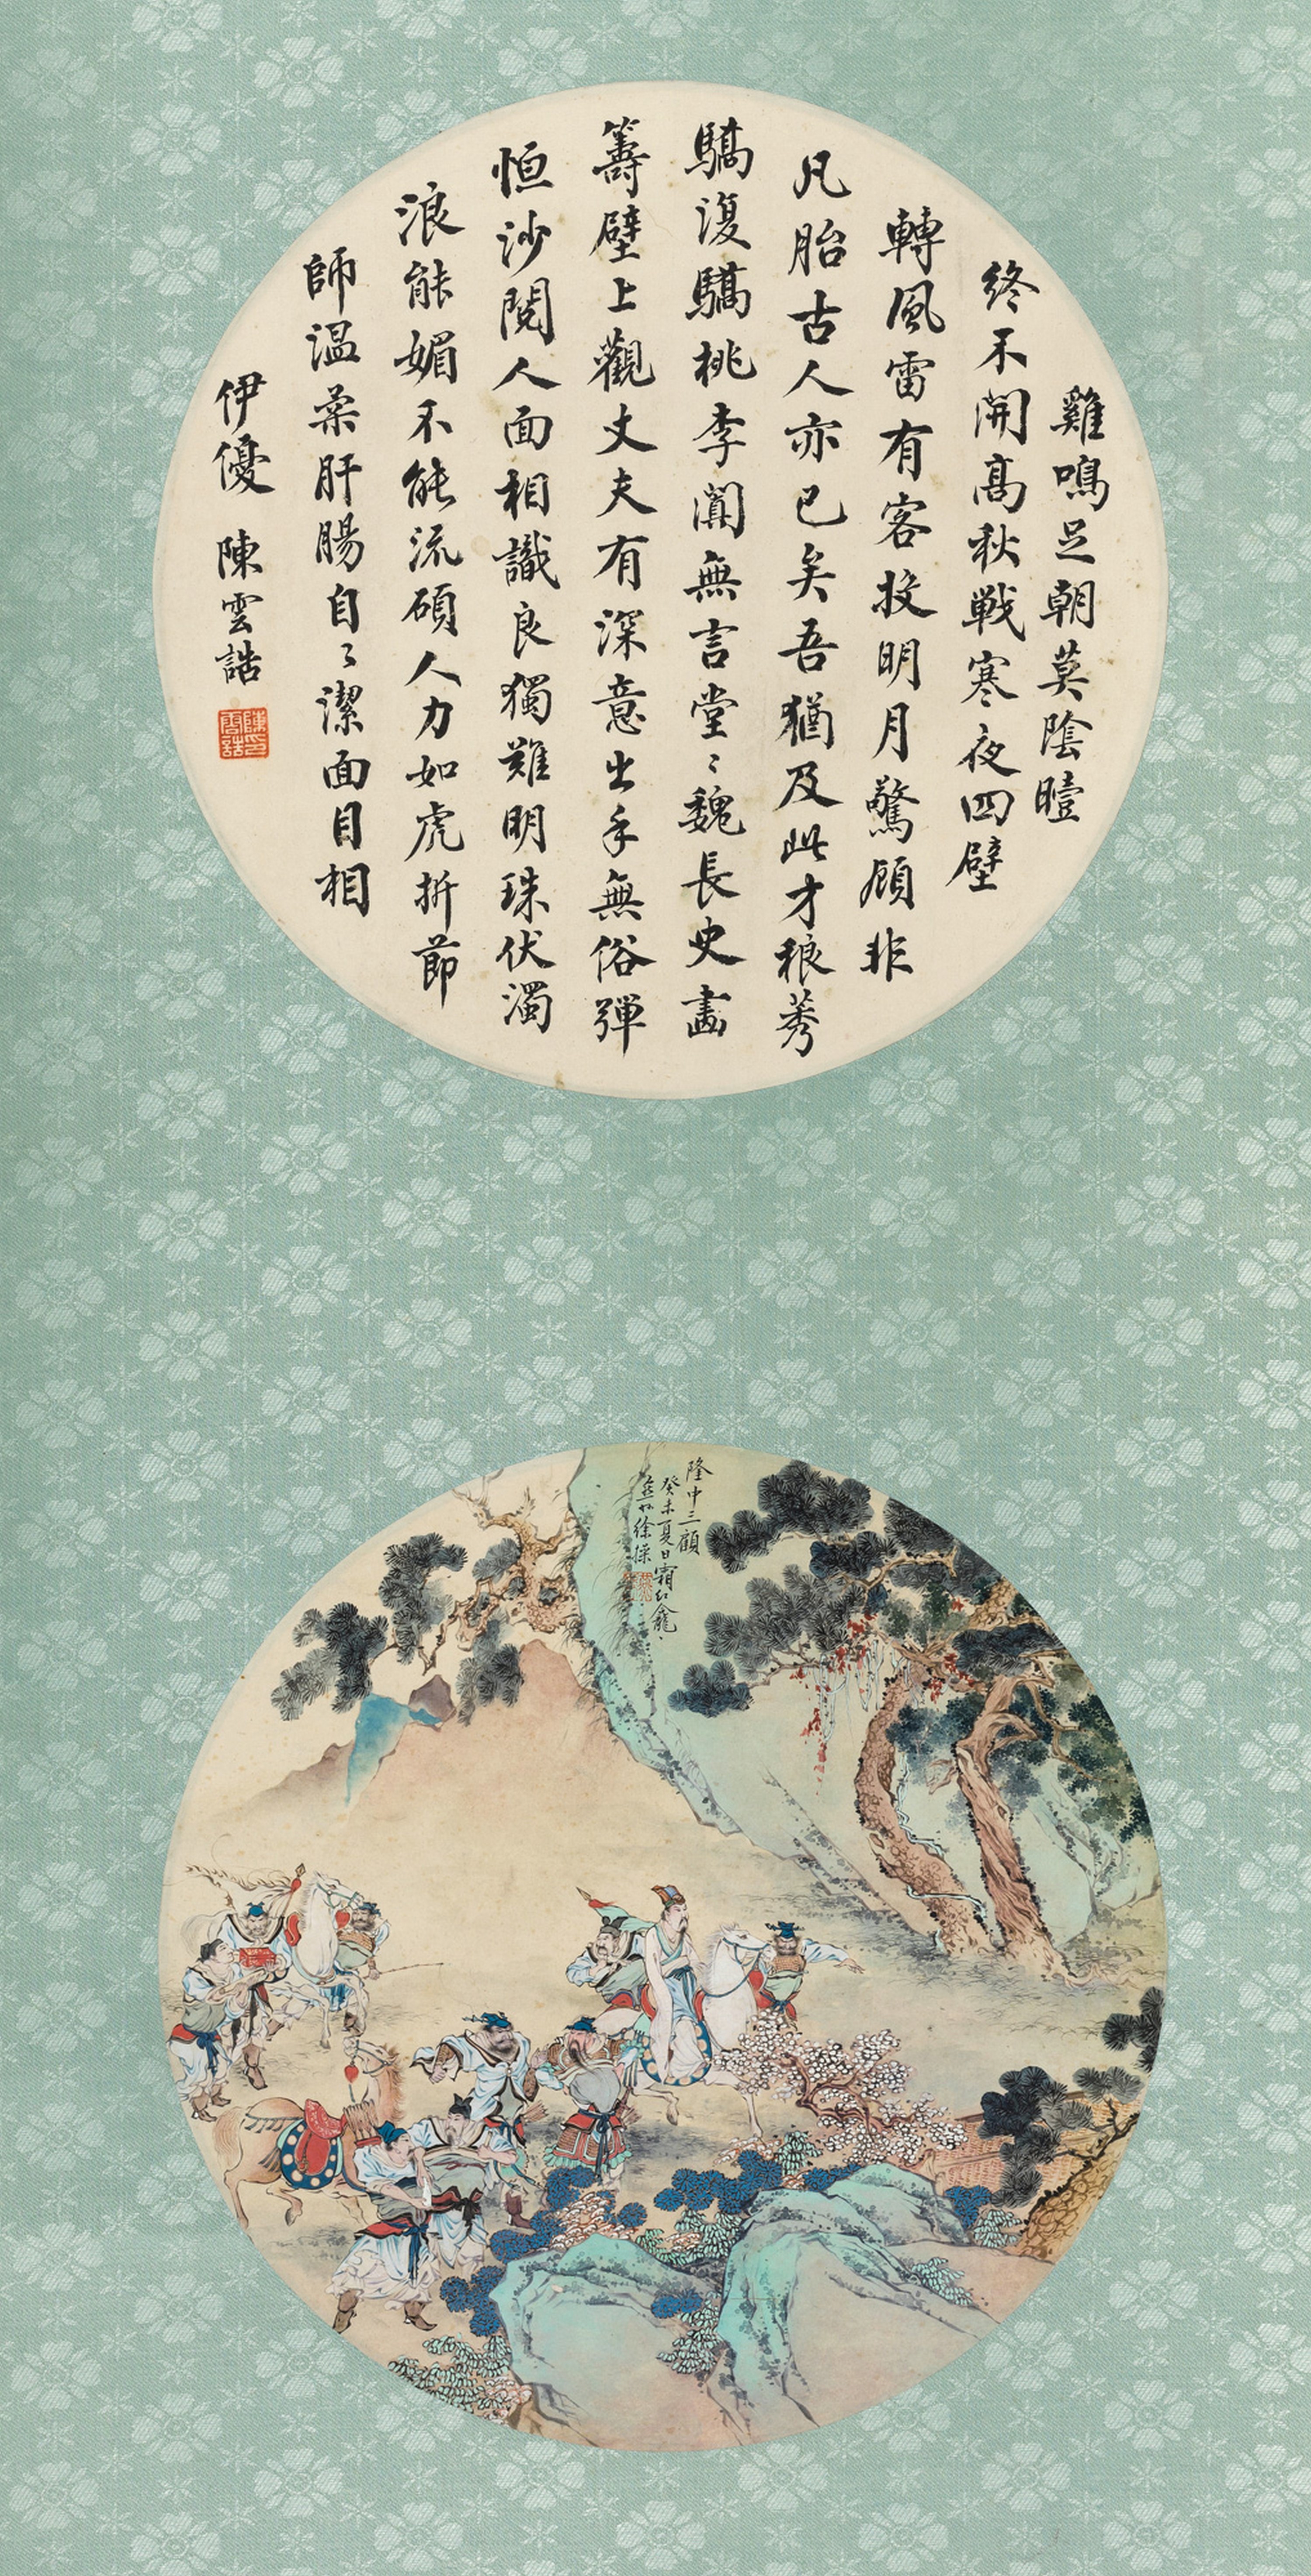 雞鳴足朝莫陰曀
終不開高秋戰寒夜四壁
轉風雷有客投明月驚顧非
凡胎古人亦已矣吾猶及此才稂莠
驕復驕桃李闃無言堂〻魏長史畫
籌壁上觀丈夫有深意出手無俗彈
恒沙閱人面相識良獨難明珠伏濁
浪能媚不能流碩人力如虎折節
師溫柔肝腸自〻潔面目相
伊優 陳雲誥
隆中三顧
癸未夏日霜紅龕
徐操